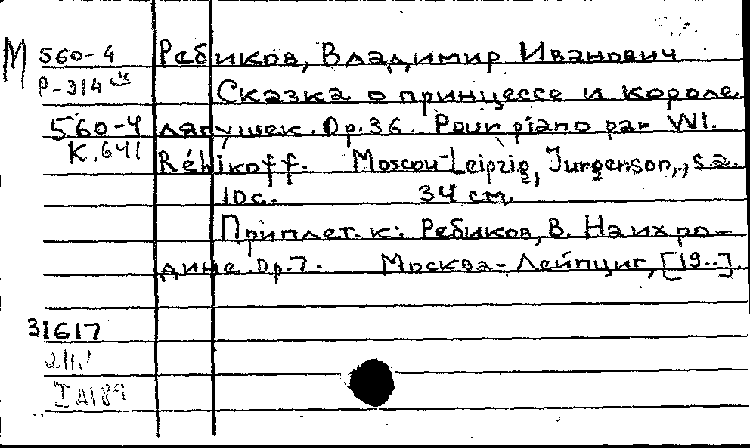 М 560-4 Ребиков, Владимир Иванович
Р-314
Сказка о принцессе и короле
560-4 лягушек. Op.36. Pour piano par Wl.
К.641 Rébikoff. Moscou-Leipzig, Jurgenson, s.a.
10 с. 34 см.
Приплет. к: Ребиков, В. На их ро-
дине. Op.7. Москва-Лейпциг, [19..].
31617